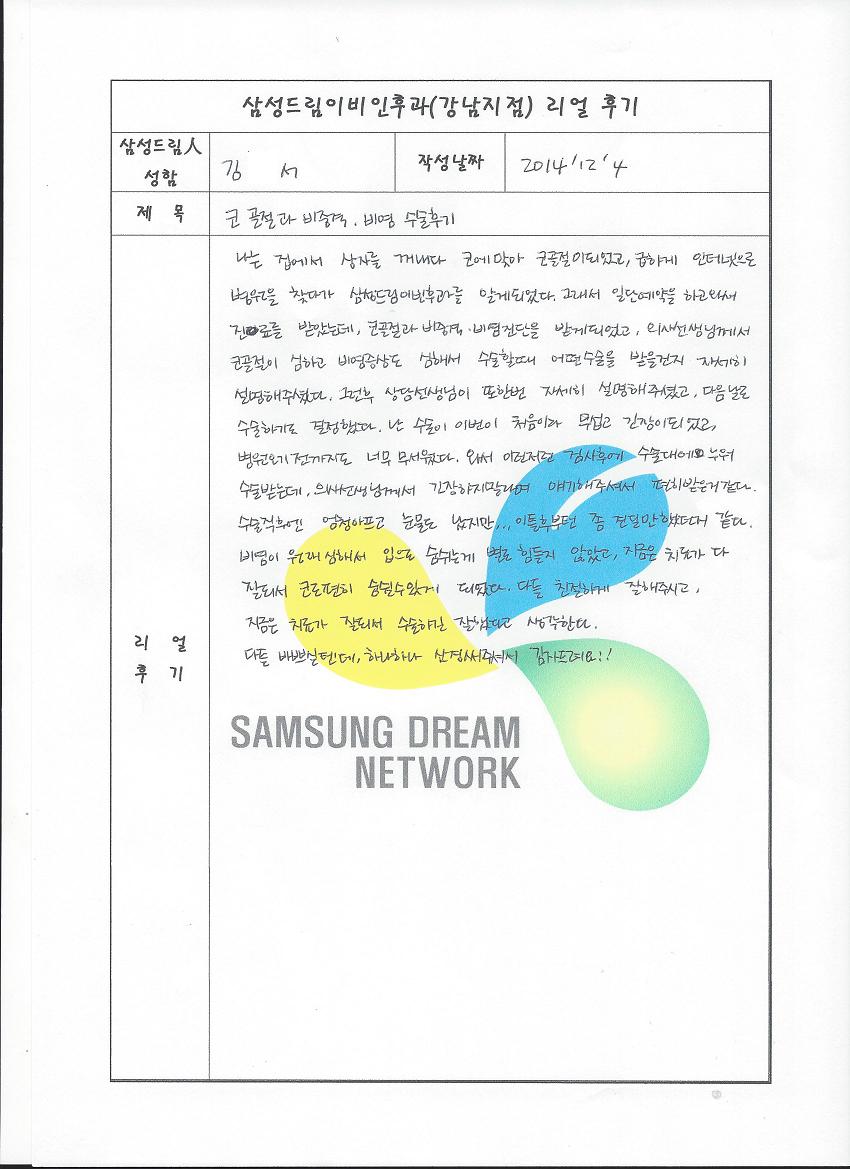 삼성드림이비인후과(강남지점) 리얼 후기
삼성드림人
성함
김 서
작성날짜
2014/12/4
제 목
코 골절과 비중격. 비염 수술후기
나는 집에서 상자를 꺼내다 코에맞아 코골절이되었고, 급하게 인터넷으로
병원을 찾다가 삼성드림이빈후과를 알게되었다. 그래서 일단예약을 하고와서
진료를 받았는데, 코골절과 비중격.비염진단을 받게되었고, 의사선생님께서
코골절이 심하고 비염증상도 심해서 수술할때 어떤수술을 받을건지 자세히
설명해주셨다. 그런후 상담선생님이 또한번 자세히 설명해주셨고, 다음날로
수술하기로 결정했다. 난 수술이 이번이 처음이라 무섭고 긴장이되었고,
병원오기전까지도 너무 무서웠다. 와서 이런저런 검사후에 수술대에 누워
수술받는데, 의사선생님께서 긴장하지말라며 얘기해주셔서 편히받은거같다.
수술직후엔 엄청아프고 눈물도 났지만... 이틀후부턴 좀 견딜만했던거 같다.
비염이 원래심해서 입으로 숨쉬는게 별로 힘들지 않았고, 지금은 치료가 다
잘되서 코로편히 숨쉴수있게 되었다. 다들 친절하게 잘해주시고,
지금은 치료가 잘되서 수술하길 잘했다고 생각한다.
다들 바쁘실텐데, 하나하나 신경써주셔서 감사드려요!!
리 얼
후 기
SAMSUNG DREAM
NETWORK